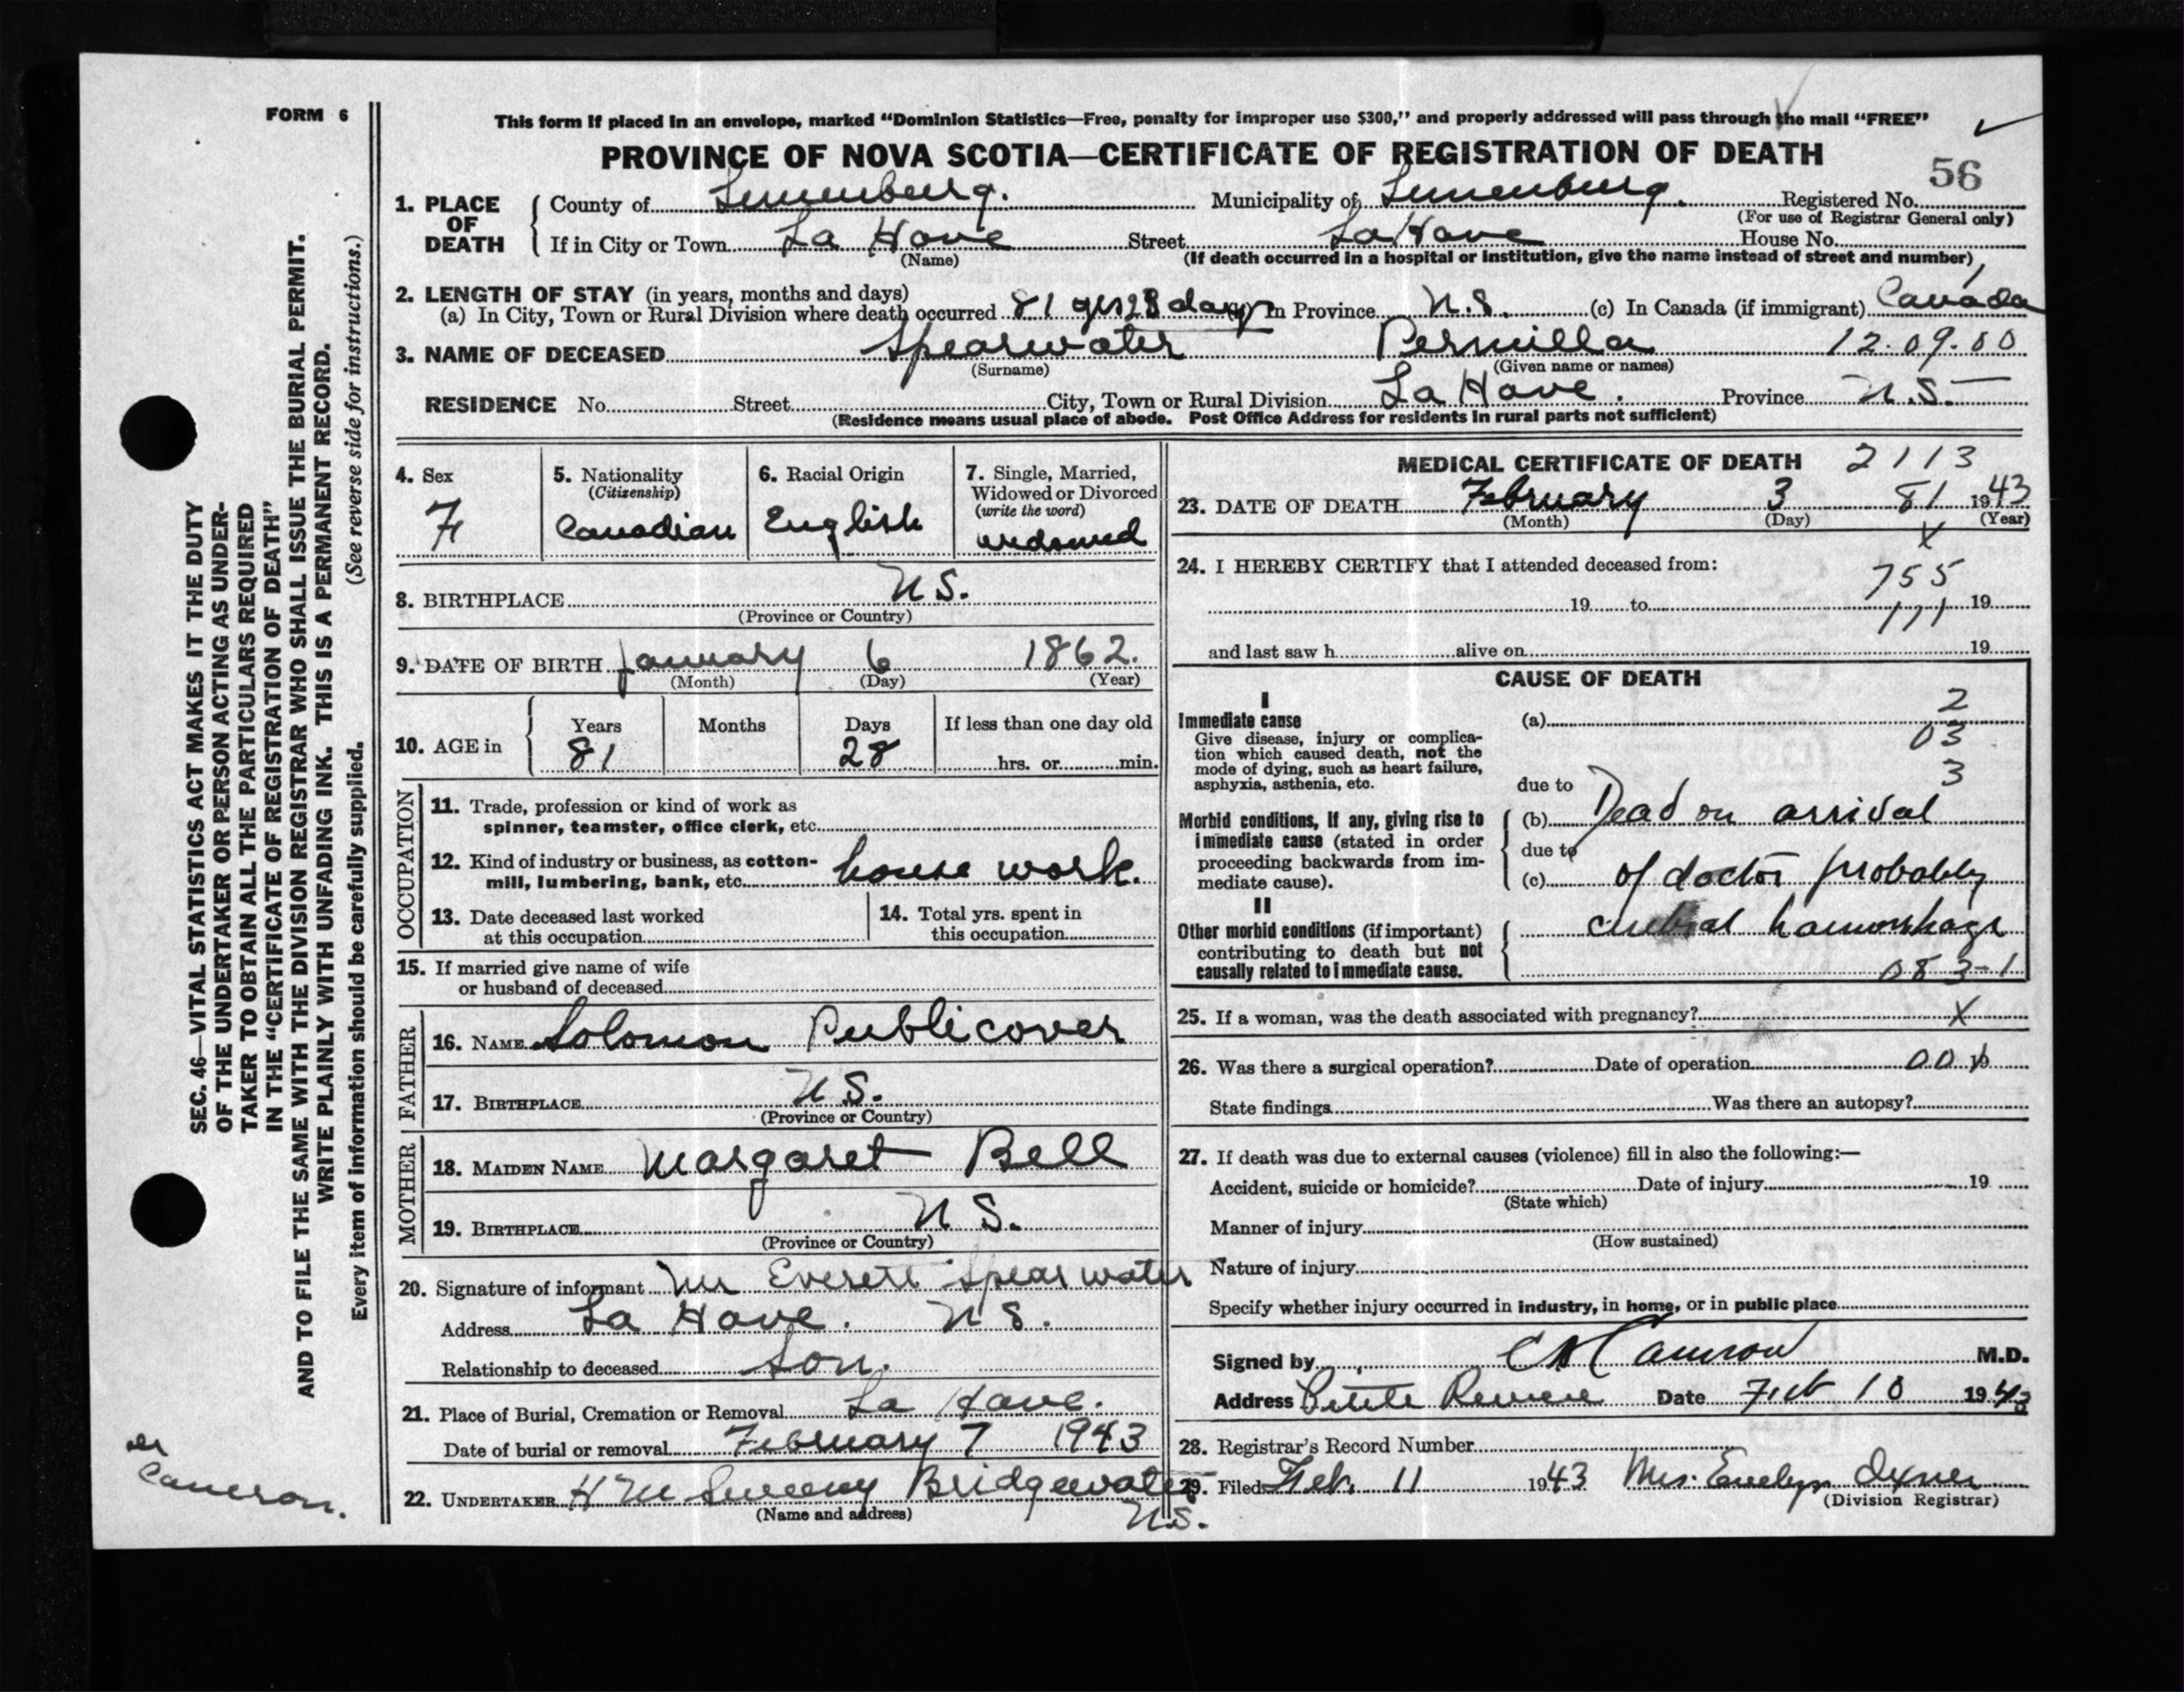 FORM 6
This form if placed in an envelope, marked “Dominion Statistics—Free, penalty for improper use $300,” and properly addressed will pass through the mail “FREE”
PROVINCE OF NOVA SCOTIA—CERTIFICATE OF REGISTRATION OF DEATH
56
1. PLACE OF DEATH County of Lunenburg. Municipality of Lunenburg. Registered No.
(For use of Registrar General only)
If in City or Town La Have Street La Have House No.
(Name) (If death occurred in a hospital or institution, give the name instead of street and number)
2. LENGTH OF STAY (in years, months and days)
(a) In City, Town or Rural Division where death occurred 81 yrs 28 days In Province N.S. (c) In Canada (if immigrant) Canada
3. NAME OF DECEASED Spearwater Permilla 12.09.00
(Surname) (Given name or names)
RESIDENCE No. Street City, Town or Rural Division La Have. Province N.S.
(Residence means usual place of abode. Post Office Address for residents in rural parts not sufficient)
4. Sex
F
5. Nationality
(Citizenship)
Canadian
6. Racial Origin
English
7. Single, Married,
Widowed or Divorced
(write the word)
widowed
8. BIRTHPLACE N.S.
(Province or Country)
9. DATE OF BIRTH January 6 1862.
(Month) (Day) (Year)
10. AGE in
Years Months Days If less than one day old
81 28 hrs. or min.
OCCUPATION
11. Trade, profession or kind of work as
spinner, teamster, office clerk, etc.
12. Kind of industry or business, as cotton-
mill, lumbering, bank, etc. house work.
13. Date deceased last worked
at this occupation
14. Total yrs. spent in
this occupation
15. If married give name of wife
or husband of deceased
FATHER
16. NAME Solomon Publicover
17. BIRTHPLACE N.S.
(Province or Country)
MOTHER
18. MAIDEN NAME Margaret Bell
19. BIRTHPLACE N.S.
(Province or Country)
20. Signature of informant Mr Everett Spearwater
Address La Have. N.S.
Relationship to deceased Son.
21. Place of Burial, Cremation or Removal La Have.
Date of burial or removal February 7 1943
22. UNDERTAKER H M Sweeny Bridgewater
(Name and address) N.S.
MEDICAL CERTIFICATE OF DEATH 2113
23. DATE OF DEATH February 3 81 1943
(Month) (Day) (Year)
X
24. I HEREBY CERTIFY that I attended deceased from:
755
19 to 19
111
and last saw h alive on 19
CAUSE OF DEATH
I
Immediate cause
Give disease, injury or complica-
tion which caused death, not the
mode of dying, such as heart failure,
asphyxia, asthenia, etc.
(a) 2
03
3
due to
Morbid conditions, if any, giving rise to
immediate cause (stated in order
proceeding backwards from im-
mediate cause).
(b) Dead on arrival
due to
(c) of doctor probably
II
Other morbid conditions (if important)
contributing to death but not
causally related to immediate cause.
cerebral hamorrhage
083-1
25. If a woman, was the death associated with pregnancy? X
26. Was there a surgical operation? Date of operation 00 19
State findings Was there an autopsy?
27. If death was due to external causes (violence) fill in also the following:—
Accident, suicide or homicide? Date of injury 19
(State which)
Manner of injury
(How sustained)
Nature of injury
Specify whether injury occurred in industry, in home, or in public place
Signed by Cameron M.D.
Address Petite Riviere Date Feb 10 1943
28. Registrar's Record Number
29. Filed Feb. 11 1943 Mrs. Evelyn Oxner
(Division Registrar)
SEC. 46—VITAL STATISTICS ACT MAKES IT THE DUTY
OF THE UNDERTAKER OR PERSON ACTING AS UNDER-
TAKER TO OBTAIN ALL THE PARTICULARS REQUIRED
IN THE “CERTIFICATE OF REGISTRATION OF DEATH”
AND TO FILE THE SAME WITH THE DIVISION REGISTRAR WHO SHALL ISSUE THE BURIAL PERMIT.
WRITE PLAINLY WITH UNFADING INK. THIS IS A PERMANENT RECORD.
Every item of information should be carefully supplied. (See reverse side for instructions.)
Cameron.